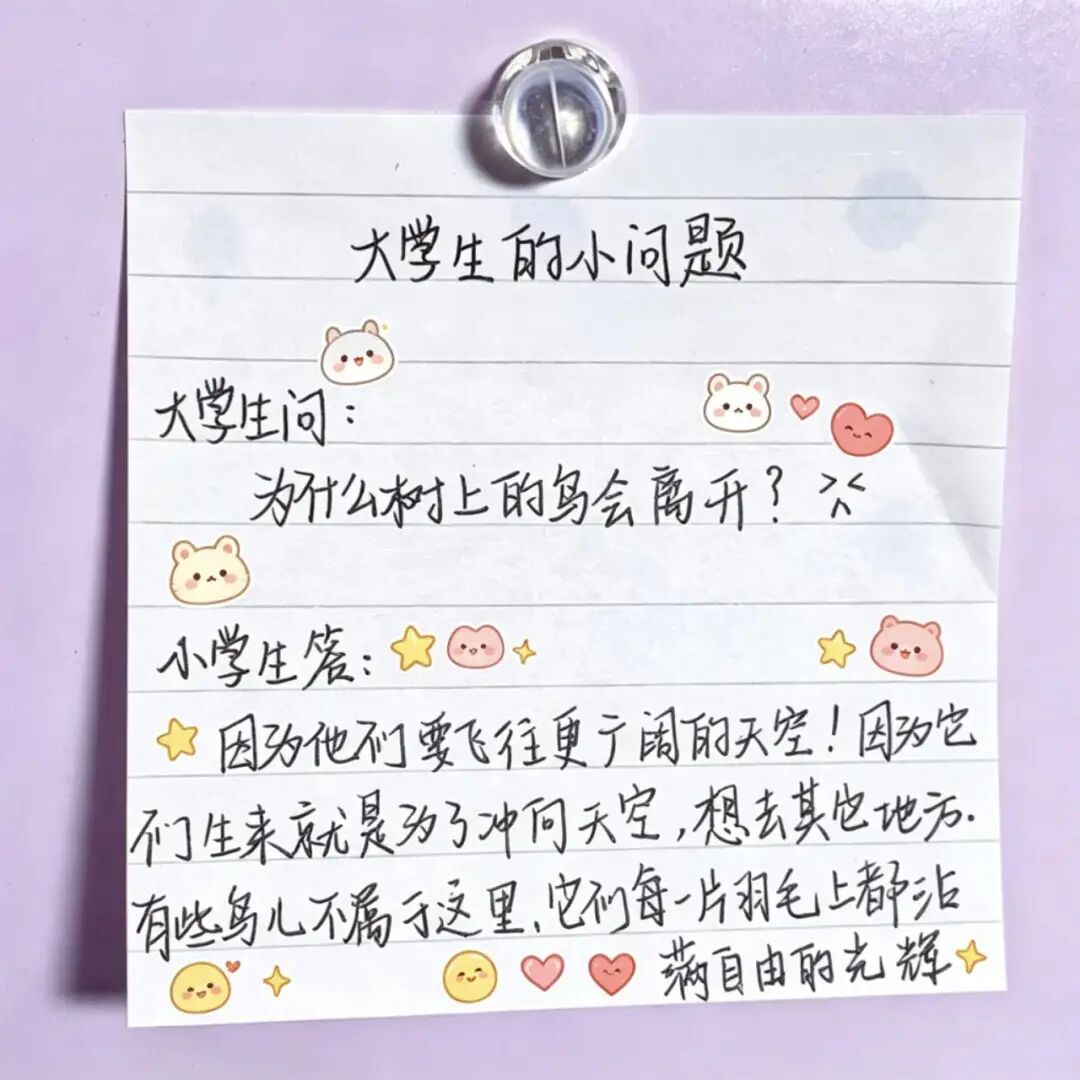 大学生的小问题
大学生问：
为什么树上的鸟会离开？
小学生答：
因为他们要飞往更广阔的天空！因为它
们生来就是为了冲向天空，想去其它地方.
有些鸟儿不属于这里、它们每一片羽毛上都沾
满自由的光辉